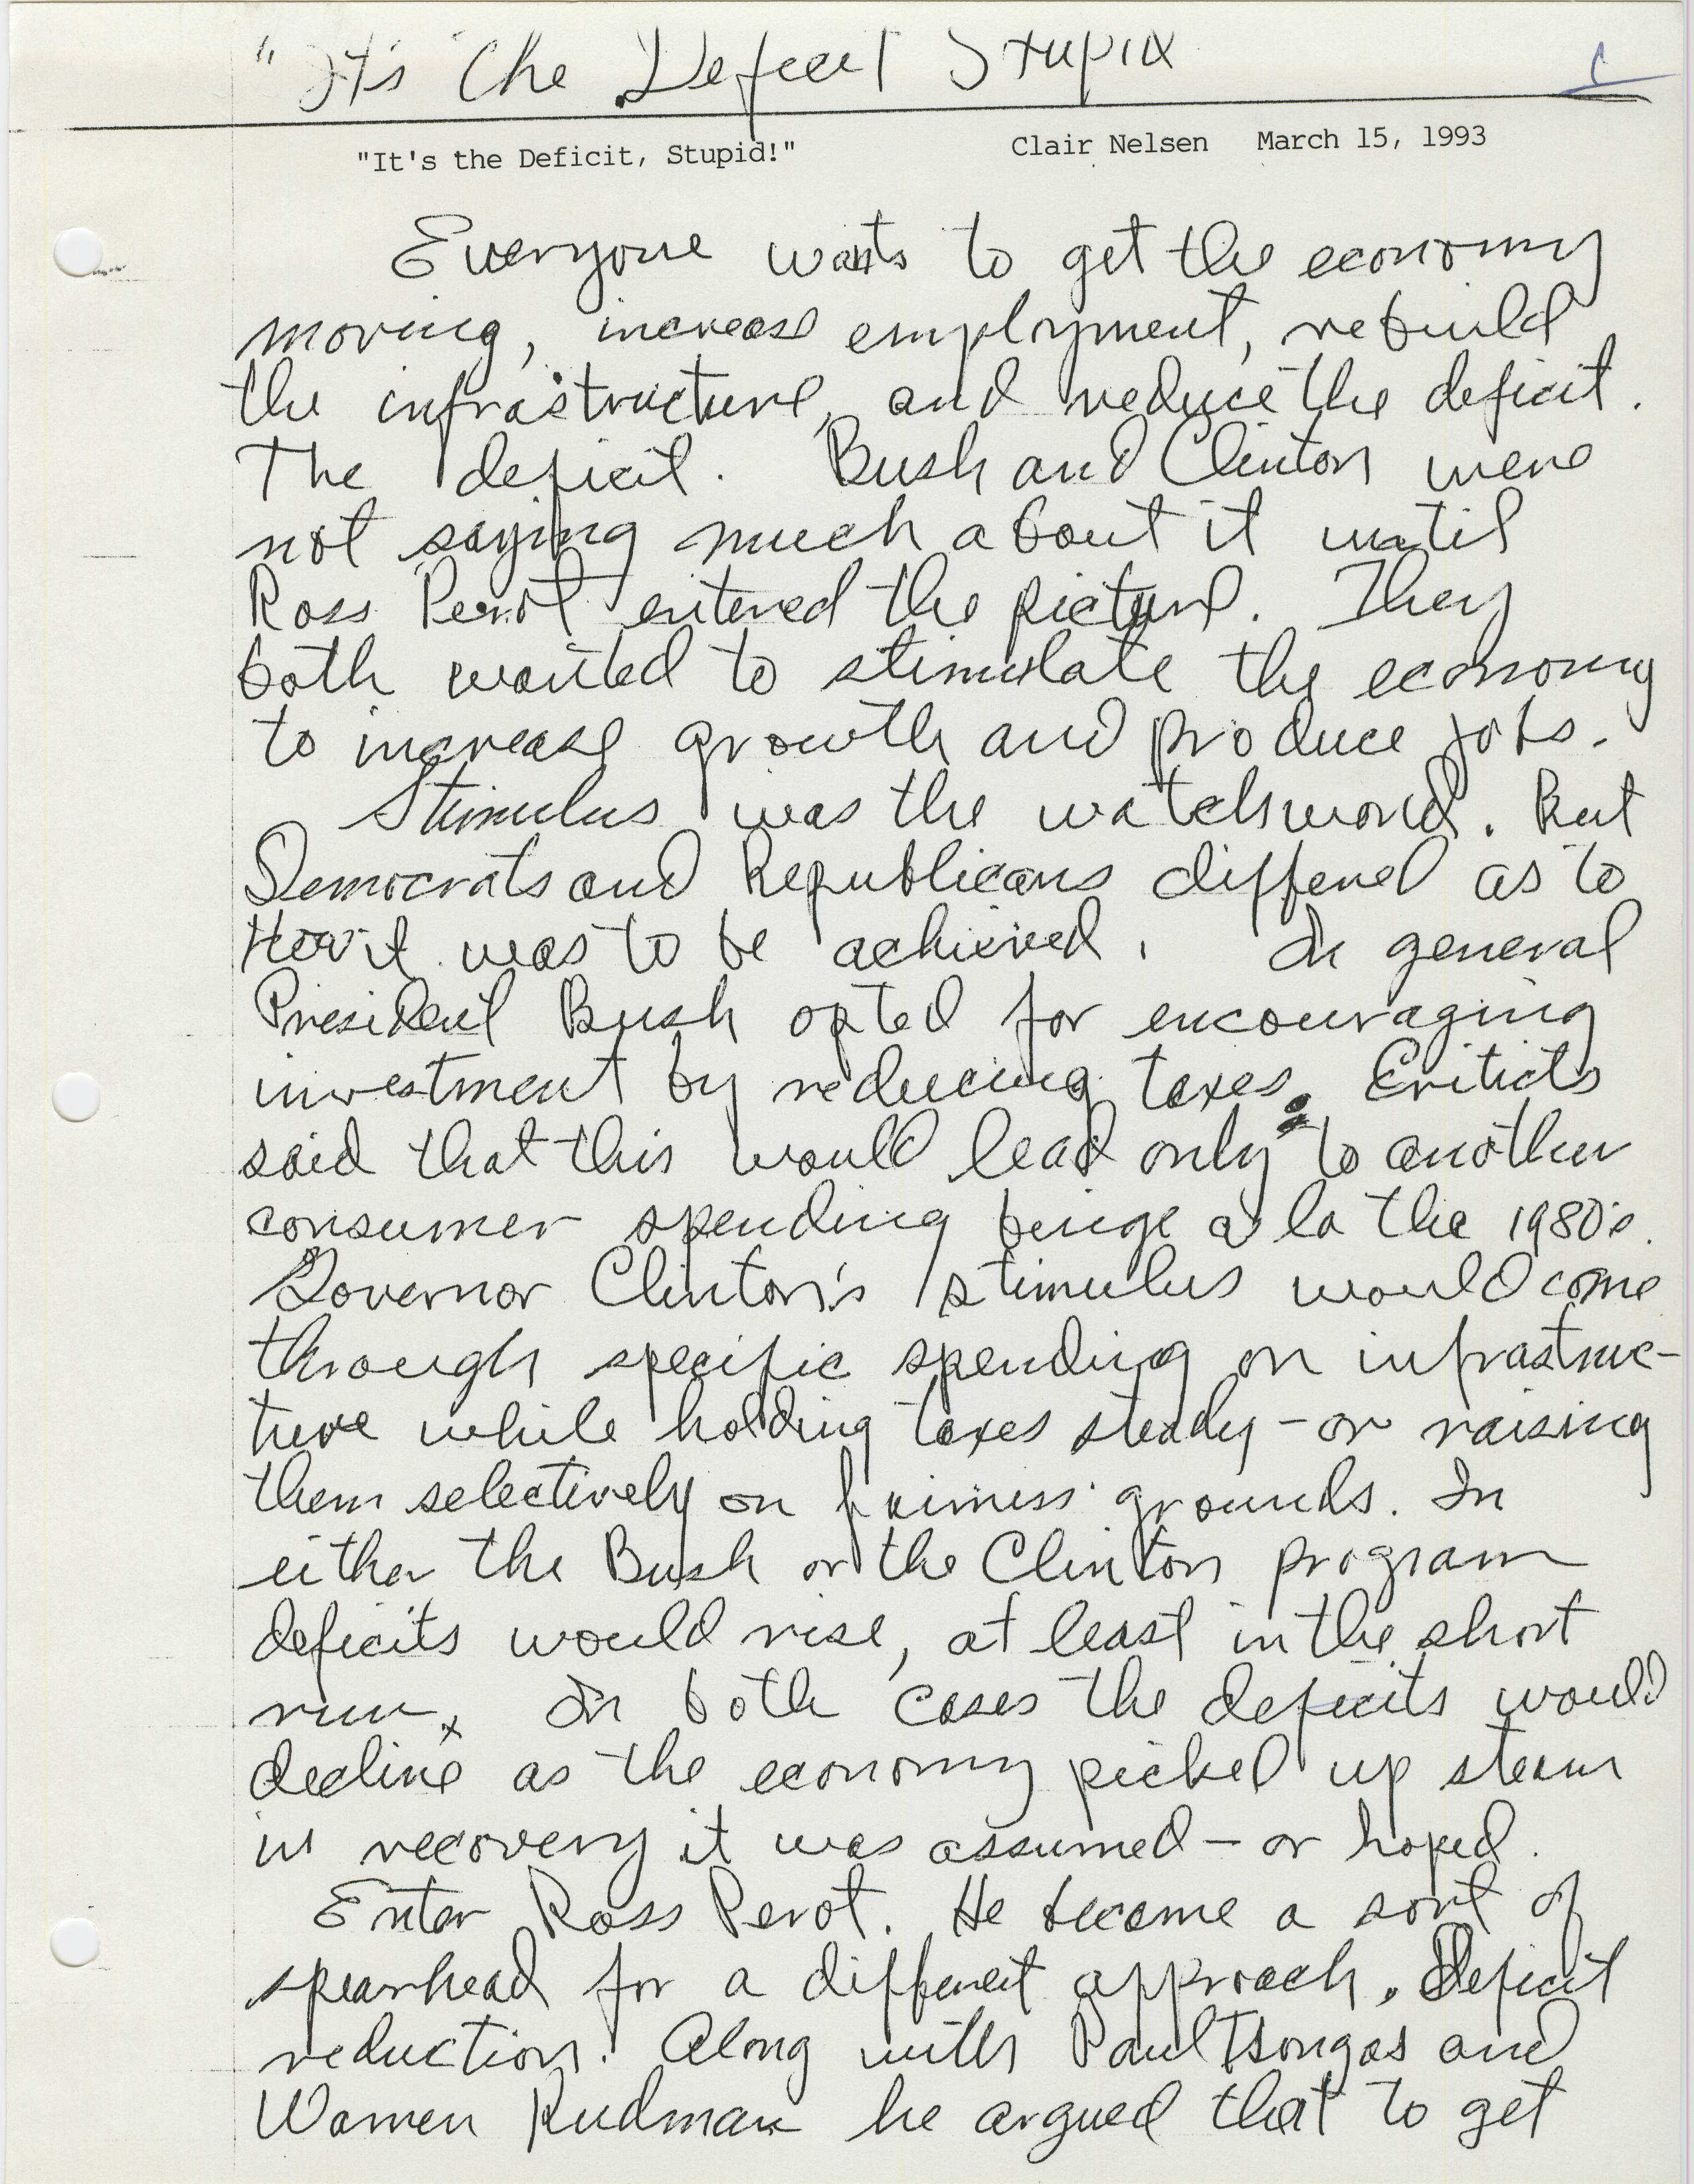 "It's the Deficit Stupid
1
"It's the Deficit, Stupid!" Clair Nelsen March 15, 1993
Everyone wants to get the economy
moving, increase employment, rebuild
the infrastructure, and reduce the deficit.
The deficit. Bush and Clinton were
not saying much about it until
Ross Perot entered the picture. They
both wanted to stimulate the economy
to increase growth and produce jobs.
Stimulus was the watchword. But
Democrats and Republicans differed as to
How it was to be achieved. In general
President Bush opted for encouraging
investment by reducing taxes. Critics
said that this would lead only to another
consumer spending binge a la the 1980's.
Governor Clinton's stimulus would come
through specific spending on infrastruc-
ture while holding taxes steady - or raising
them selectively on fairness grounds. In
either the Bush or the Clinton program
deficits would rise, at least in the short
run. In both cases the deficits would
decline as the economy picked up steam
in recovery it was assumed - or hoped.
Enter Ross Perot. He became a sort of
spearhead for a different approach. Deficit
reduction. Along with Paul Tsongas and
Warren Rudman he argued that to get